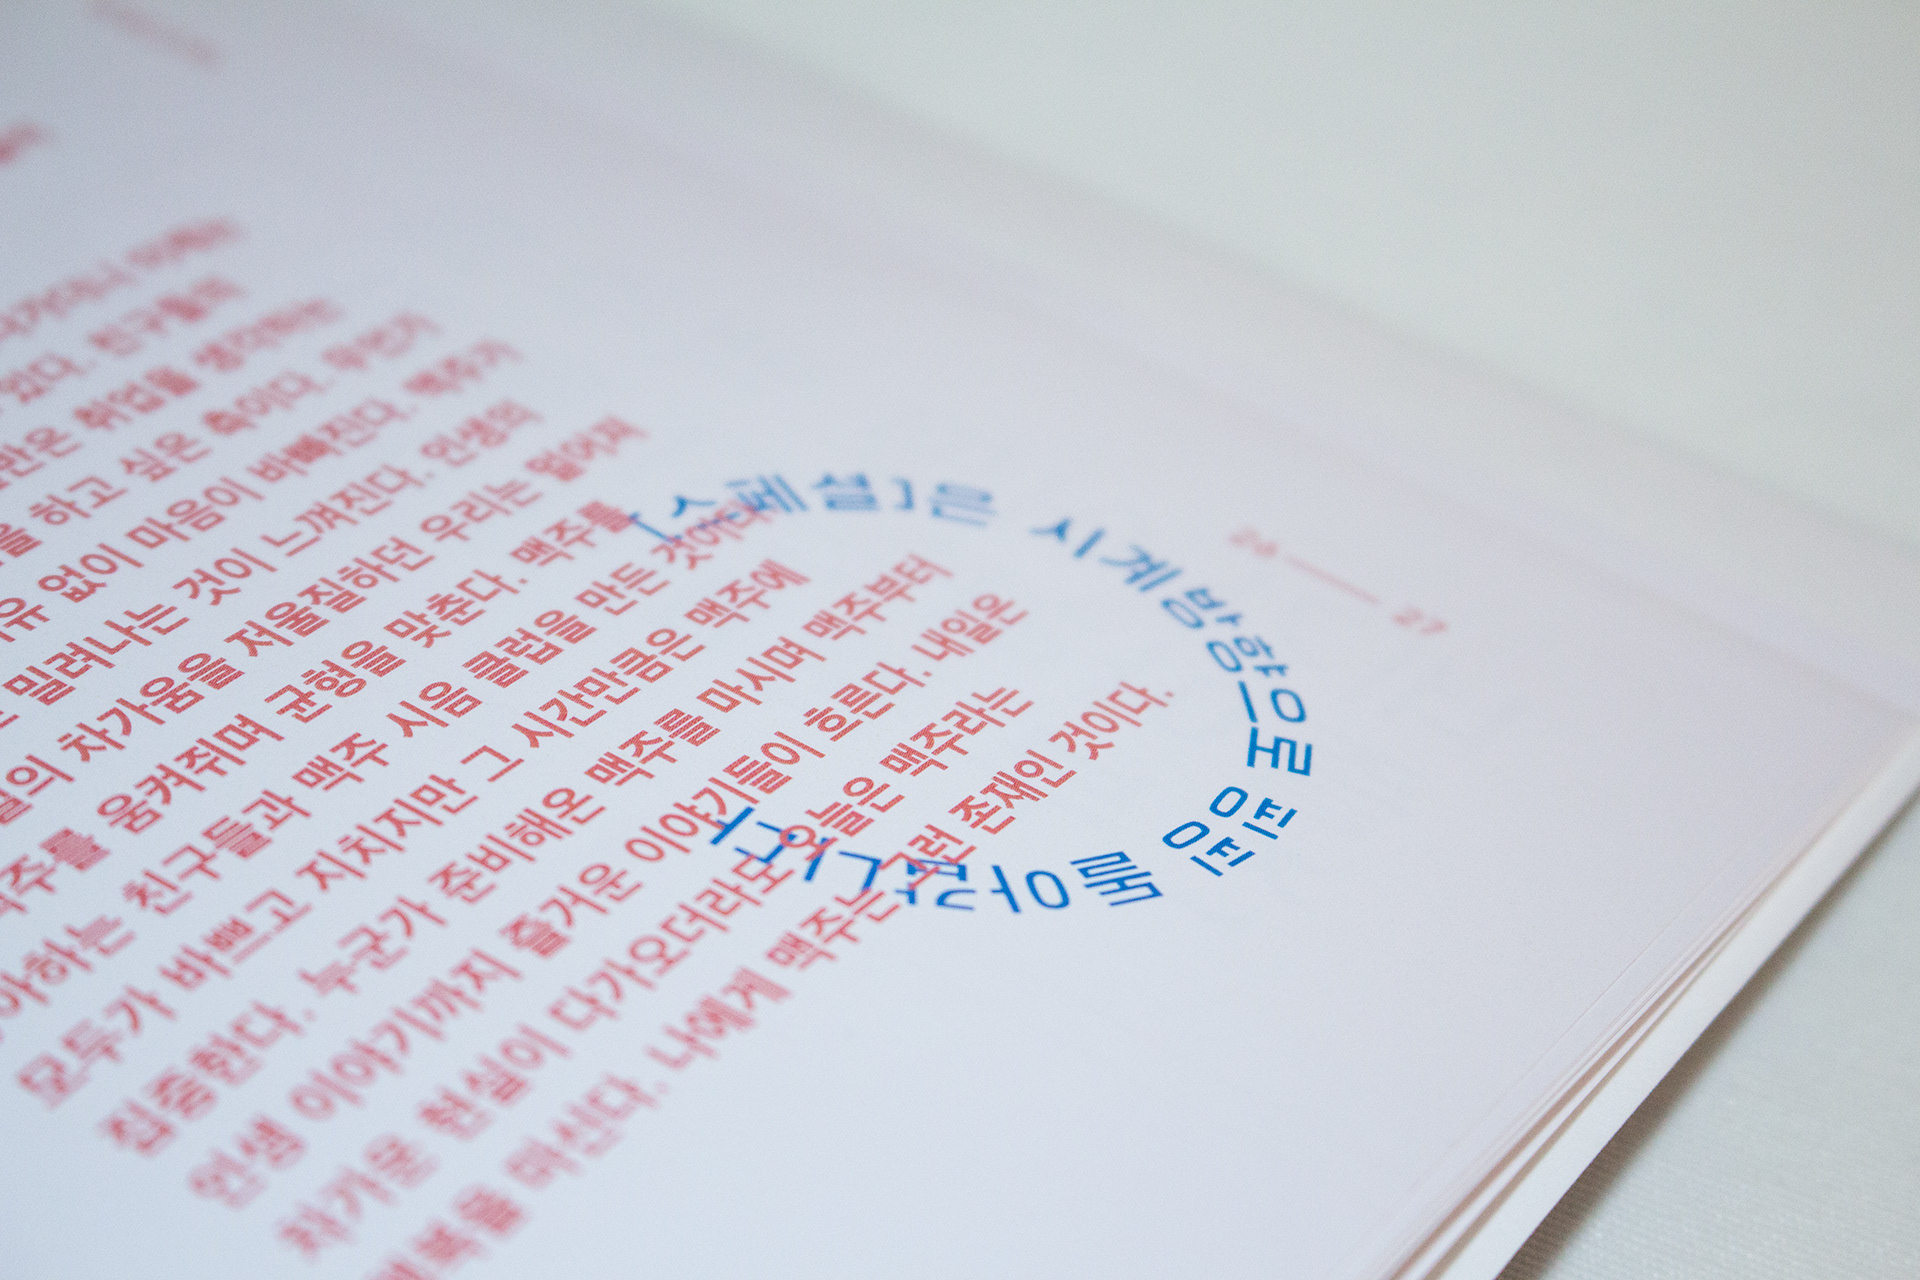 친구들의
만은 취업을 생각하는
을 하고 싶은 축이다. 무언가
없이 마음이 바빠진다. 맥주가
밀려나는 것이 느껴진다. 인생의
의 차가움을 저울질하던 우리는
맥주를 움켜쥐며 균형을 맞춘다. 맥주를
좋아하는 친구들과 맥주 시음 클럽을 만든 것이다.
모두가 바쁘고 지치지만 그 시간만큼은 맥주에
집중한다. 누군가 준비해온 맥주를 마시며 맥주부터
인생 이야기까지 즐거운 이야기들이 흐른다. 내일은
차가운 현실이 다가오더라도 오늘은 맥주라는
행복을 마신다. 나에게 맥주는 그런 존재인 것이다.
「스페셜」은 시계방향으로 빙빙 돌아갑니다
26 — 27